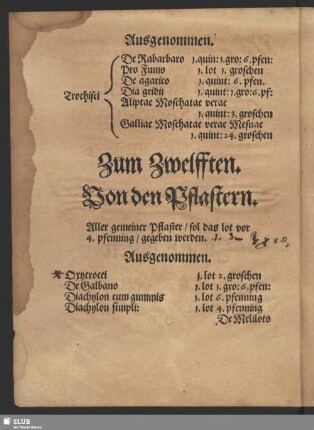 Ausgenommen.
De Rabarbaro 1.quin: 1.gro: 6.pfen:
Pro Fumo 1. lot 1. groschen
De agarico 1. quint: 6. pfen.
Trochisci Dia gridij 1. quint: 1.gro: 6.pf:
Aliptae Moschatae verae
1. quint: 3. groschen
Galliae Moschatae verae Mesuae
1. quint: 24. groschen
Zum Zwelfften.
Von den Pflastern.
Aller gemeiner Pflaster / sol das lot vor
4. pfenning / gegeben werden.
Ausgenommen.
Oxytrocei 1. lot 2. groschen
De Galbano 1. lot 1. gro: 6. pfen:
Diachylon cum gummis 1. lot 6. pfenning
Diachylon simpli: 1. lot 4. pfenning
De Meliloto
SLUB